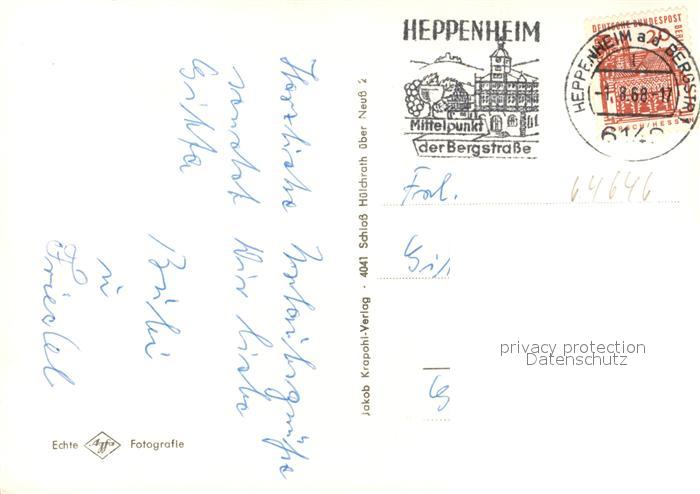 HEPPENHEIM
Mittelpunkt
der Bergstraße
DEUTSCHE BUNDESPOST BERLIN
20
HEPPENHEIM a.d. BERGSTR
-1.8.68-17
6148
Herzliche Urlaubsgrüße
sendet Dir liebe
Gitta
Friedel
Frl.
64646
privacy protection
Datenschutz
Jakob Krapohl-Verlag · 4041 Schloß Hülchrath über Neuß 2
Echte Agfa Fotografie